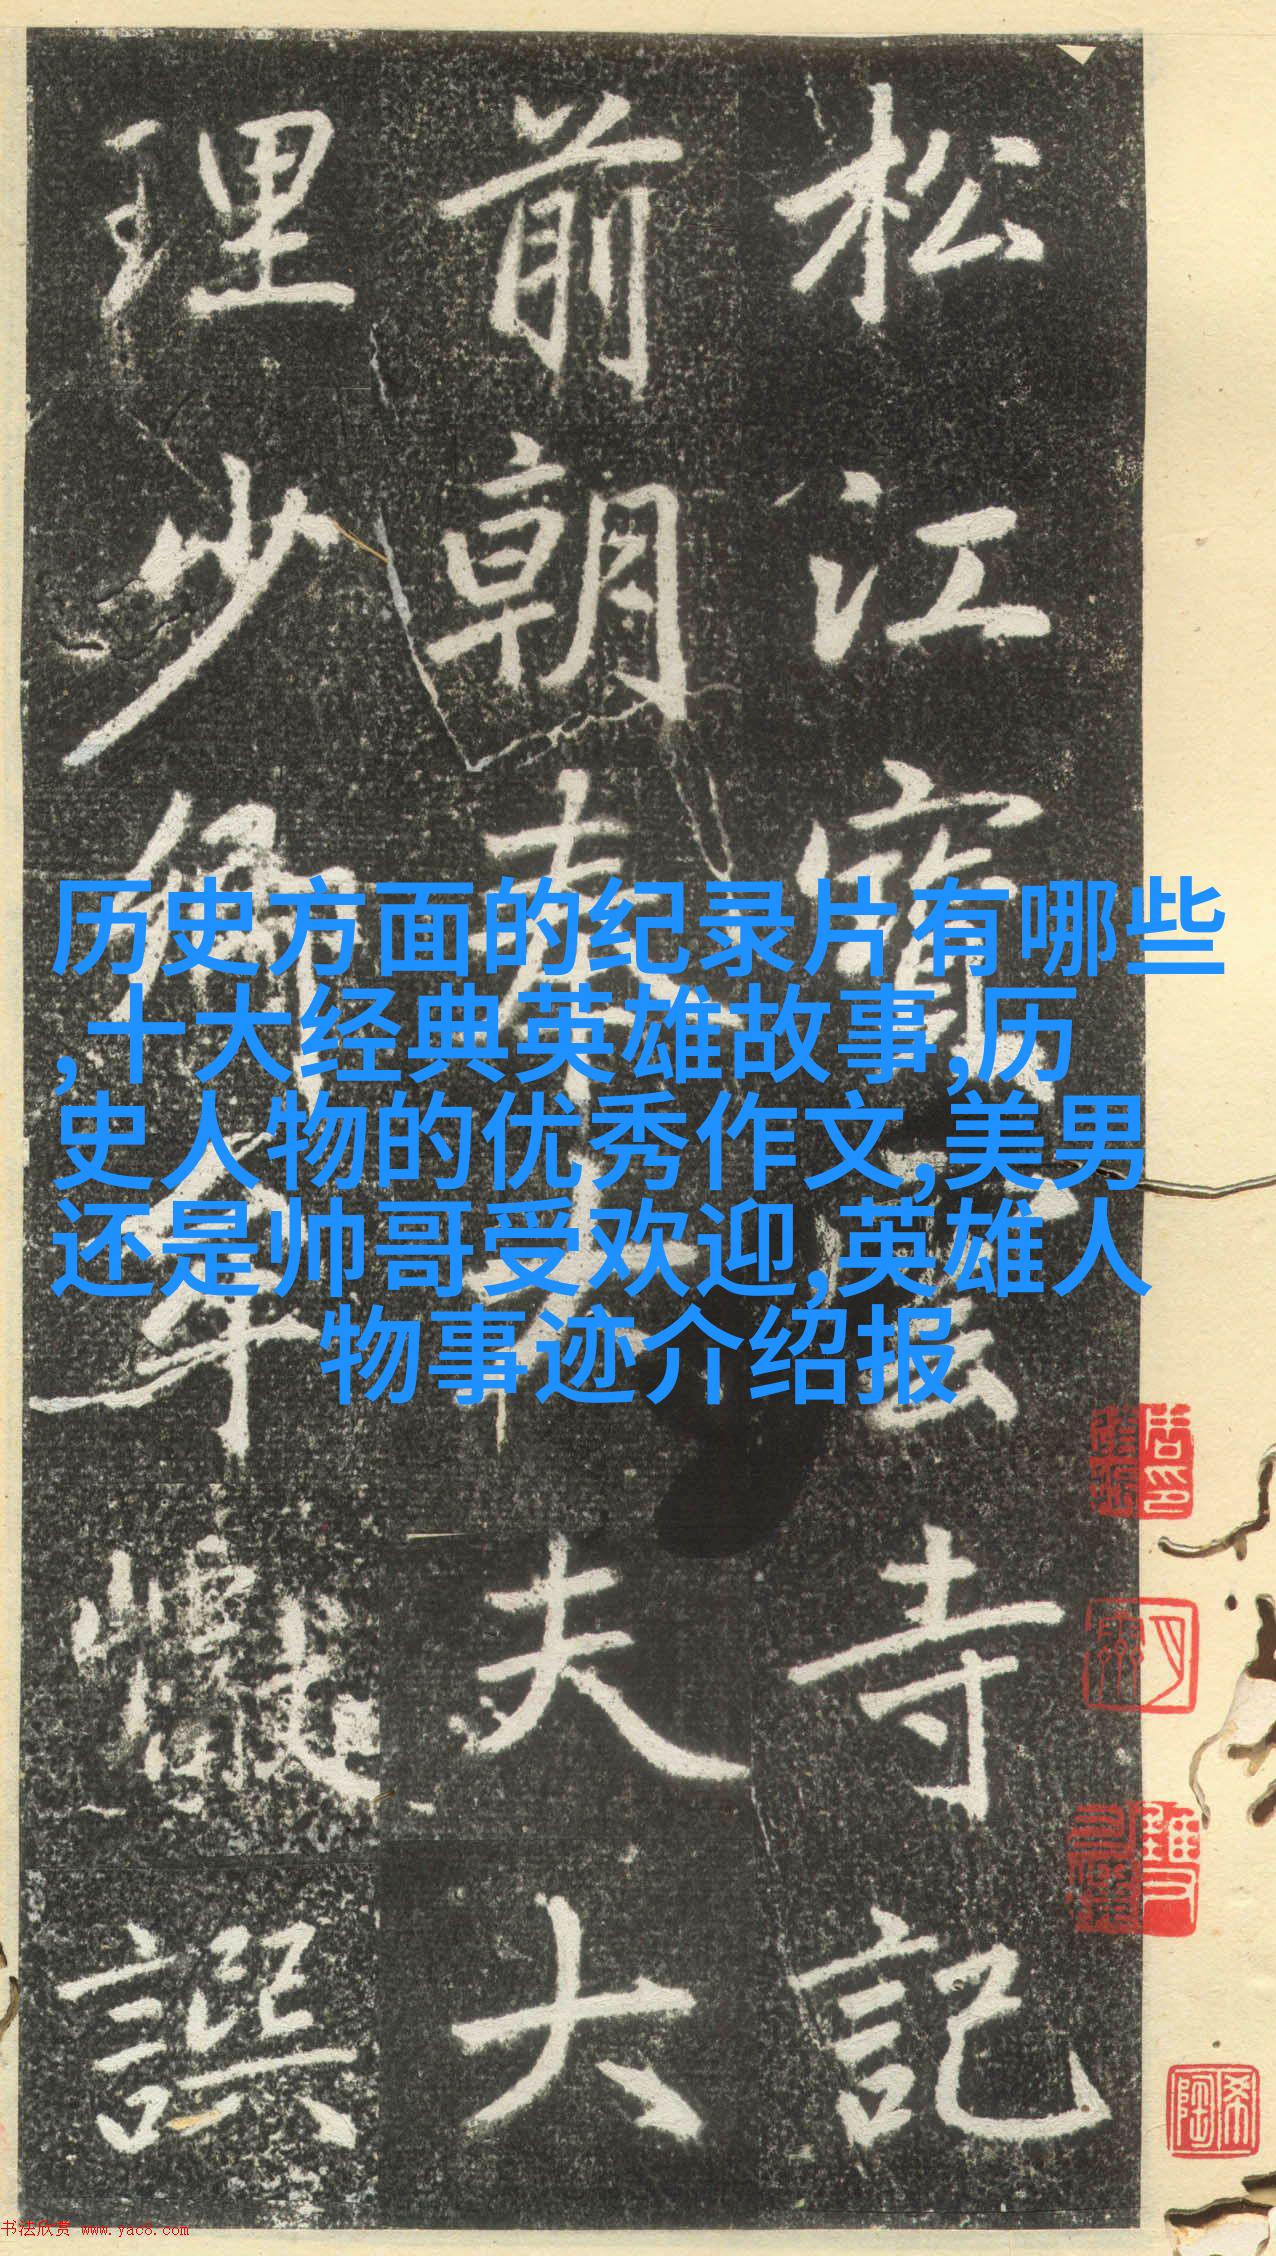 松江寳雲寺記
前朝奉大夫大
理少卿牟巘譔
历史方面的纪录片有哪些
,十大经典英雄故事,历
史人物的优秀作文,美男
还是帅哥受欢迎,英雄人
物事迹介绍报
书法欣赏 www.yac8.com